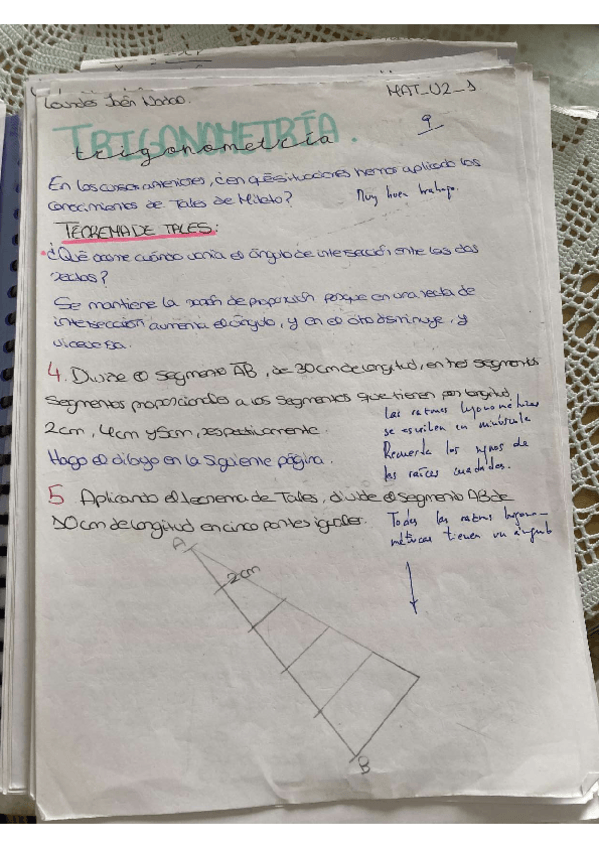 Lourdes Jaén
MAT_U2_1
TRIGONOMETRÍA.
trigonometría
9
En los cursos anteriores, ¿en qué situaciones hemos aplicado los
conocimientos de Tales de Mileto?
Muy buen trabajo.
TEOREMA DE TALES:
¿Qué ocurre cuándo varía el ángulo de intersección entre las dos
rectas?
Se mantiene la razón de proporción porque en una recta de
intersección aumenta el ángulo, y en el otro disminuye, y
viceversa.
4. Divide el segmento AB, de 30cm de longitud, en tres segmentos
segmentos proporcionales a los segmentos que tienen por longitud
2cm, 4cm y 5cm, respectivamente.
Hago el dibujo en la siguiente página.
Las razones trigonométricas
se escriben en minúscula
Recuerda los signos de
las raíces cuadradas.
5 Aplicando el teorema de Tales, divide el segmento AB de
10cm de longitud en cinco partes iguales.
Todas las razones trigono-
métricas tienen un ángulo
A
2cm
B